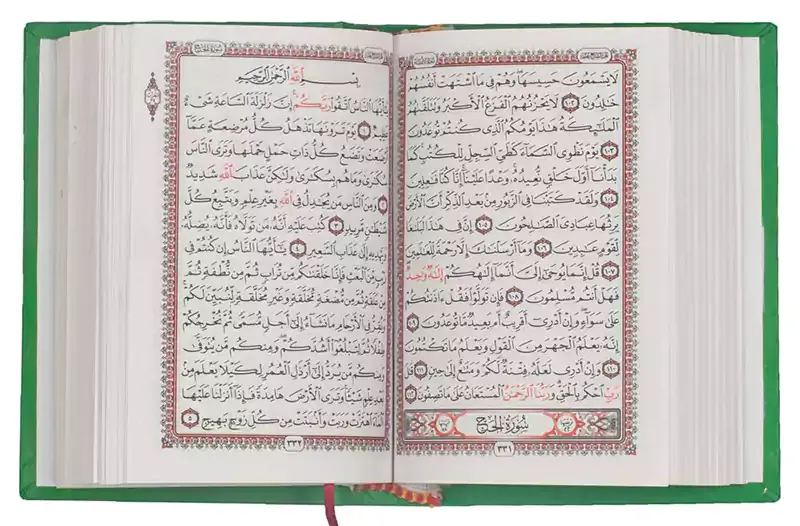 لَا يَسْمَعُونَ حَسِيسَهَا وَهُمْ فِى مَا ٱشْتَهَتْ أَنفُسُهُمْ
خَٰلِدُونَ ١٠٢ لَا يَحْزُنُهُمُ ٱلْفَزَعُ ٱلْأَكْبَرُ وَتَتَلَقَّىٰهُمُ
ٱلْمَلَٰٓئِكَةُ هَٰذَا يَوْمُكُمُ ٱلَّذِى كُنتُمْ تُوعَدُونَ
١٠٣ يَوْمَ نَطْوِى ٱلسَّمَآءَ كَطَىِّ ٱلسِّجِلِّ لِلْكُتُبِ كَمَا
بَدَأْنَآ أَوَّلَ خَلْقٍ نُّعِيدُهُۥ وَعْدًا عَلَيْنَآ إِنَّا كُنَّا فَٰعِلِينَ
١٠٤ وَلَقَدْ كَتَبْنَا فِى ٱلزَّبُورِ مِنۢ بَعْدِ ٱلذِّكْرِ أَنَّ ٱلْأَرْضَ
يَرِثُهَا عِبَادِىَ ٱلصَّٰلِحُونَ ١٠٥ إِنَّ فِى هَٰذَا لَبَلَٰغًا
لِّقَوْمٍ عَٰبِدِينَ ١٠٦ وَمَآ أَرْسَلْنَٰكَ إِلَّا رَحْمَةً لِّلْعَٰلَمِينَ
١٠٧ قُلْ إِنَّمَا يُوحَىٰٓ إِلَىَّ أَنَّمَآ إِلَٰهُكُمْ إِلَٰهٌ وَٰحِدٌ
فَهَلْ أَنتُم مُّسْلِمُونَ ١٠٨ فَإِن تَوَلَّوْا۟ فَقُلْ ءَاذَنتُكُمْ
عَلَىٰ سَوَآءٍ وَإِنْ أَدْرِىٓ أَقَرِيبٌ أَم بَعِيدٌ مَّا تُوعَدُونَ ١٠٩
إِنَّهُۥ يَعْلَمُ ٱلْجَهْرَ مِنَ ٱلْقَوْلِ وَيَعْلَمُ مَا تَكْتُمُونَ
١١٠ وَإِنْ أَدْرِى لَعَلَّهُۥ فِتْنَةٌ لَّكُمْ وَمَتَٰعٌ إِلَىٰ حِينٍ ١١١ قَٰلَ
رَبِّ ٱحْكُم بِٱلْحَقِّ وَرَبُّنَا ٱلرَّحْمَٰنُ ٱلْمُسْتَعَانُ عَلَىٰ مَا تَصِفُونَ ١١٢
سُورَةُ الحَجِّ
٣٣١
سُورَةُ الحَجِّ
بِسْمِ ٱللَّهِ ٱلرَّحْمَٰنِ ٱلرَّحِيمِ
يَٰٓأَيُّهَا ٱلنَّاسُ ٱتَّقُوا۟ رَبَّكُمْ إِنَّ زَلْزَلَةَ ٱلسَّاعَةِ شَىْءٌ
عَظِيمٌ ١ يَوْمَ تَرَوْنَهَا تَذْهَلُ كُلُّ مُرْضِعَةٍ عَمَّآ
أَرْضَعَتْ وَتَضَعُ كُلُّ ذَاتِ حَمْلٍ حَمْلَهَا وَتَرَى ٱلنَّاسَ
سُكَٰرَىٰ وَمَا هُم بِسُكَٰرَىٰ وَلَٰكِنَّ عَذَابَ ٱللَّهِ شَدِيدٌ
٢ وَمِنَ ٱلنَّاسِ مَن يُجَٰدِلُ فِى ٱللَّهِ بِغَيْرِ عِلْمٍ وَيَتَّبِعُ كُلَّ
شَيْطَٰنٍ مَّرِيدٍ ٣ كُتِبَ عَلَيْهِ أَنَّهُۥ مَن تَوَلَّاهُ فَأَنَّهُۥ يُضِلُّهُۥ
وَيَهْدِيهِ إِلَىٰ عَذَابِ ٱلسَّعِيرِ ٤ يَٰٓأَيُّهَا ٱلنَّاسُ إِن كُنتُمْ فِى
رَيْبٍ مِّنَ ٱلْبَعْثِ فَإِنَّا خَلَقْنَٰكُم مِّن تُرَابٍ ثُمَّ مِن نُّطْفَةٍ ثُمَّ
مِنْ عَلَقَةٍ ثُمَّ مِن مُّضْغَةٍ مُّخَلَّقَةٍ وَغَيْرِ مُخَلَّقَةٍ لِّنُبَيِّنَ لَكُمْ
وَنُقِرُّ فِى ٱلْأَرْحَامِ مَا نَشَآءُ إِلَىٰٓ أَجَلٍ مُّسَمًّى ثُمَّ نُخْرِجُكُمْ
طِفْلًا ثُمَّ لِتَبْلُغُوٓا۟ أَشُدَّكُمْ وَمِنكُم مَّن يُتَوَفَّىٰ
وَمِنكُم مَّن يُرَدُّ إِلَىٰٓ أَرْذَلِ ٱلْعُمُرِ لِكَيْلَا يَعْلَمَ مِنۢ
بَعْدِ عِلْمٍ شَيْـًٔا وَتَرَى ٱلْأَرْضَ هَامِدَةً فَإِذَآ أَنزَلْنَا عَلَيْهَا
ٱلْمَآءَ ٱهْتَزَّتْ وَرَبَتْ وَأَنۢبَتَتْ مِن كُلِّ زَوْجٍۭ بَهِيجٍ ٥
٣٣٢